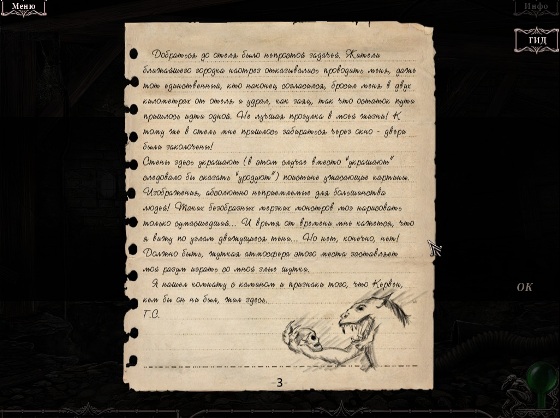 Меню
Инфо
ГИД
Добраться до отеля было непростой задачей. Жители
ближайшего городка наотрез отказывались проводить меня, даже
тот единственный, кто наконец согласился, бросил меня в двух
километрах от отеля и удрал, как заяц, так что остаток пути
пришлось идти одной. Не лучшая прогулка в моей жизни! К
тому же в отель мне пришлось забираться через окно - двери
были заколочены!
Стены здесь украшают (в этом случае вместо "украшают"
следовало бы сказать "уродуют") поистине ужасающие картины.
Изображения, абсолютно неприемлемые для большинства
людей! Таких безобразных мерзких монстров мог нарисовать
только сумасшедший... И время от времени мне кажется, что
я вижу по углам движущиеся тени... Но нет, конечно, нет!
Должно быть, жуткая атмосфера этого места заставляет
мой разум играть со мной злые шутки.
Я нашел комнату с камином и признаки того, что Кервин,
кем бы он ни был, жил здесь.
Г.С.
OK
3